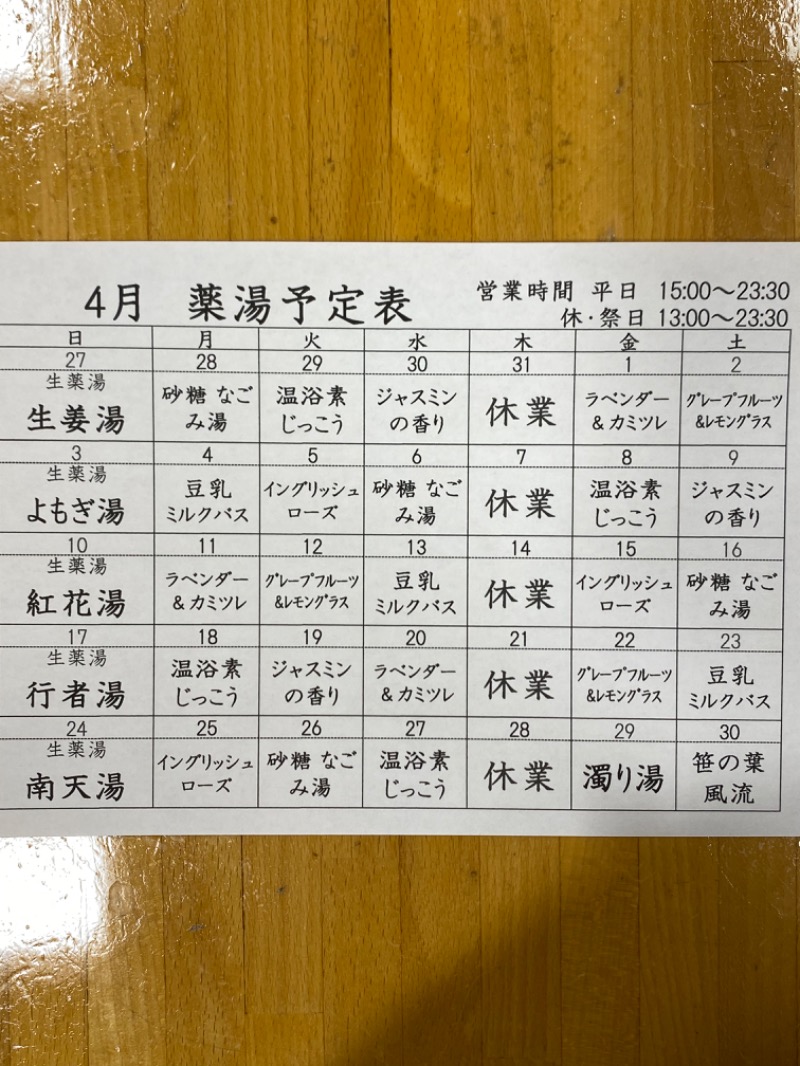 4月 薬湯予定表
営業時間 平日 15:00～23:30
休・祭日 13:00～23:30
日 月 火 水 木 金 土
27 28 29 30 31 1 2
生薬湯
生姜湯
砂糖 なご
み湯
温浴素
じっこう
ジャスミン
の香り
休業
ラベンダー
&カミツレ
グレープフルーツ
&レモングラス
3 4 5 6 7 8 9
生薬湯
よもぎ湯
豆乳
ミルクバス
イングリッシュ
ローズ
砂糖 なご
み湯
休業
温浴素
じっこう
ジャスミン
の香り
10 11 12 13 14 15 16
生薬湯
紅花湯
ラベンダー
&カミツレ
グレープフルーツ
&レモングラス
豆乳
ミルクバス
休業
イングリッシュ
ローズ
砂糖 なご
み湯
17 18 19 20 21 22 23
生薬湯
行者湯
温浴素
じっこう
ジャスミン
の香り
ラベンダー
&カミツレ
休業
グレープフルーツ
&レモングラス
豆乳
ミルクバス
24 25 26 27 28 29 30
生薬湯
南天湯
イングリッシュ
ローズ
砂糖 なご
み湯
温浴素
じっこう
休業
濁り湯
笹の葉
風流